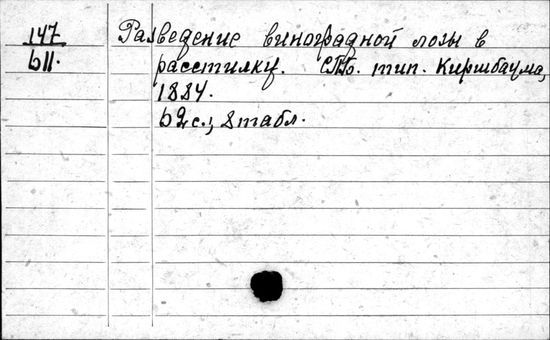 147
611.
Разведение виноградной лозы в
расстилку. СПб. тип. Киршбаума,
1884.
62 с.; 8 табл.